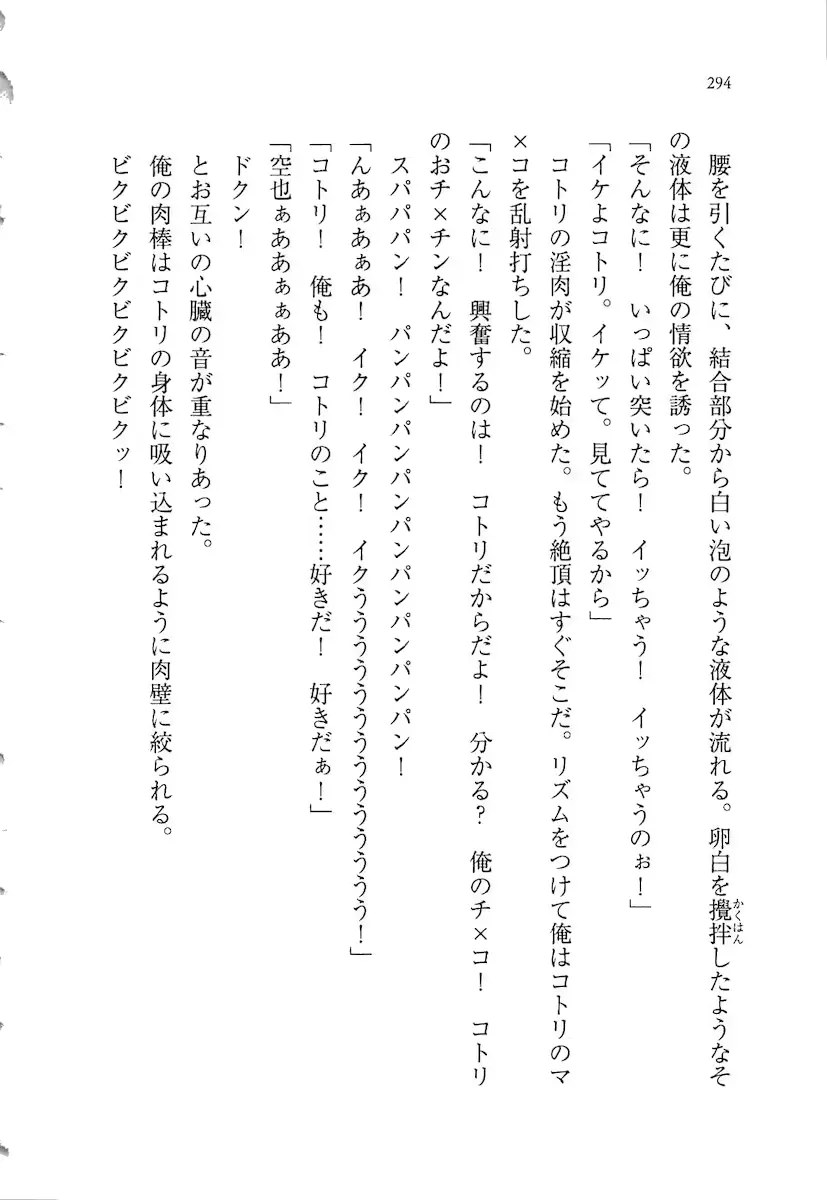 294
腰を引くたびに、結合部分から白い泡のような液体が流れる。卵白を攪拌したようなそ
かくはん
の液体は更に俺の情欲を誘った。
「そんなに！　いっぱい突いたら！　イッちゃう！　イッちゃうのぉ！」
「イケよコトリ。イケッて。見ててやるから」
コトリの淫肉が収縮を始めた。もう絶頂はすぐそこだ。リズムをつけて俺はコトリのマ
×コを乱射打ちした。
「こんなに！　興奮するのは！　コトリだからだよ！　分かる？　俺のチ×コ！　コトリ
のおチ×チンなんだよ！」
スパパパン！　パンパンパンパンパンパンパンパン！
「んあぁあぁあ！　イク！　イク！　イクうううううううううううう！」
「コトリ！　俺も！　コトリのこと……好きだ！　好きだぁ！」
「空也ぁああぁぁああ！」
ドクン！
とお互いの心臓の音が重なりあった。
俺の肉棒はコトリの身体に吸い込まれるように肉壁に絞られる。
ビクビクビクビクビクビクッ！